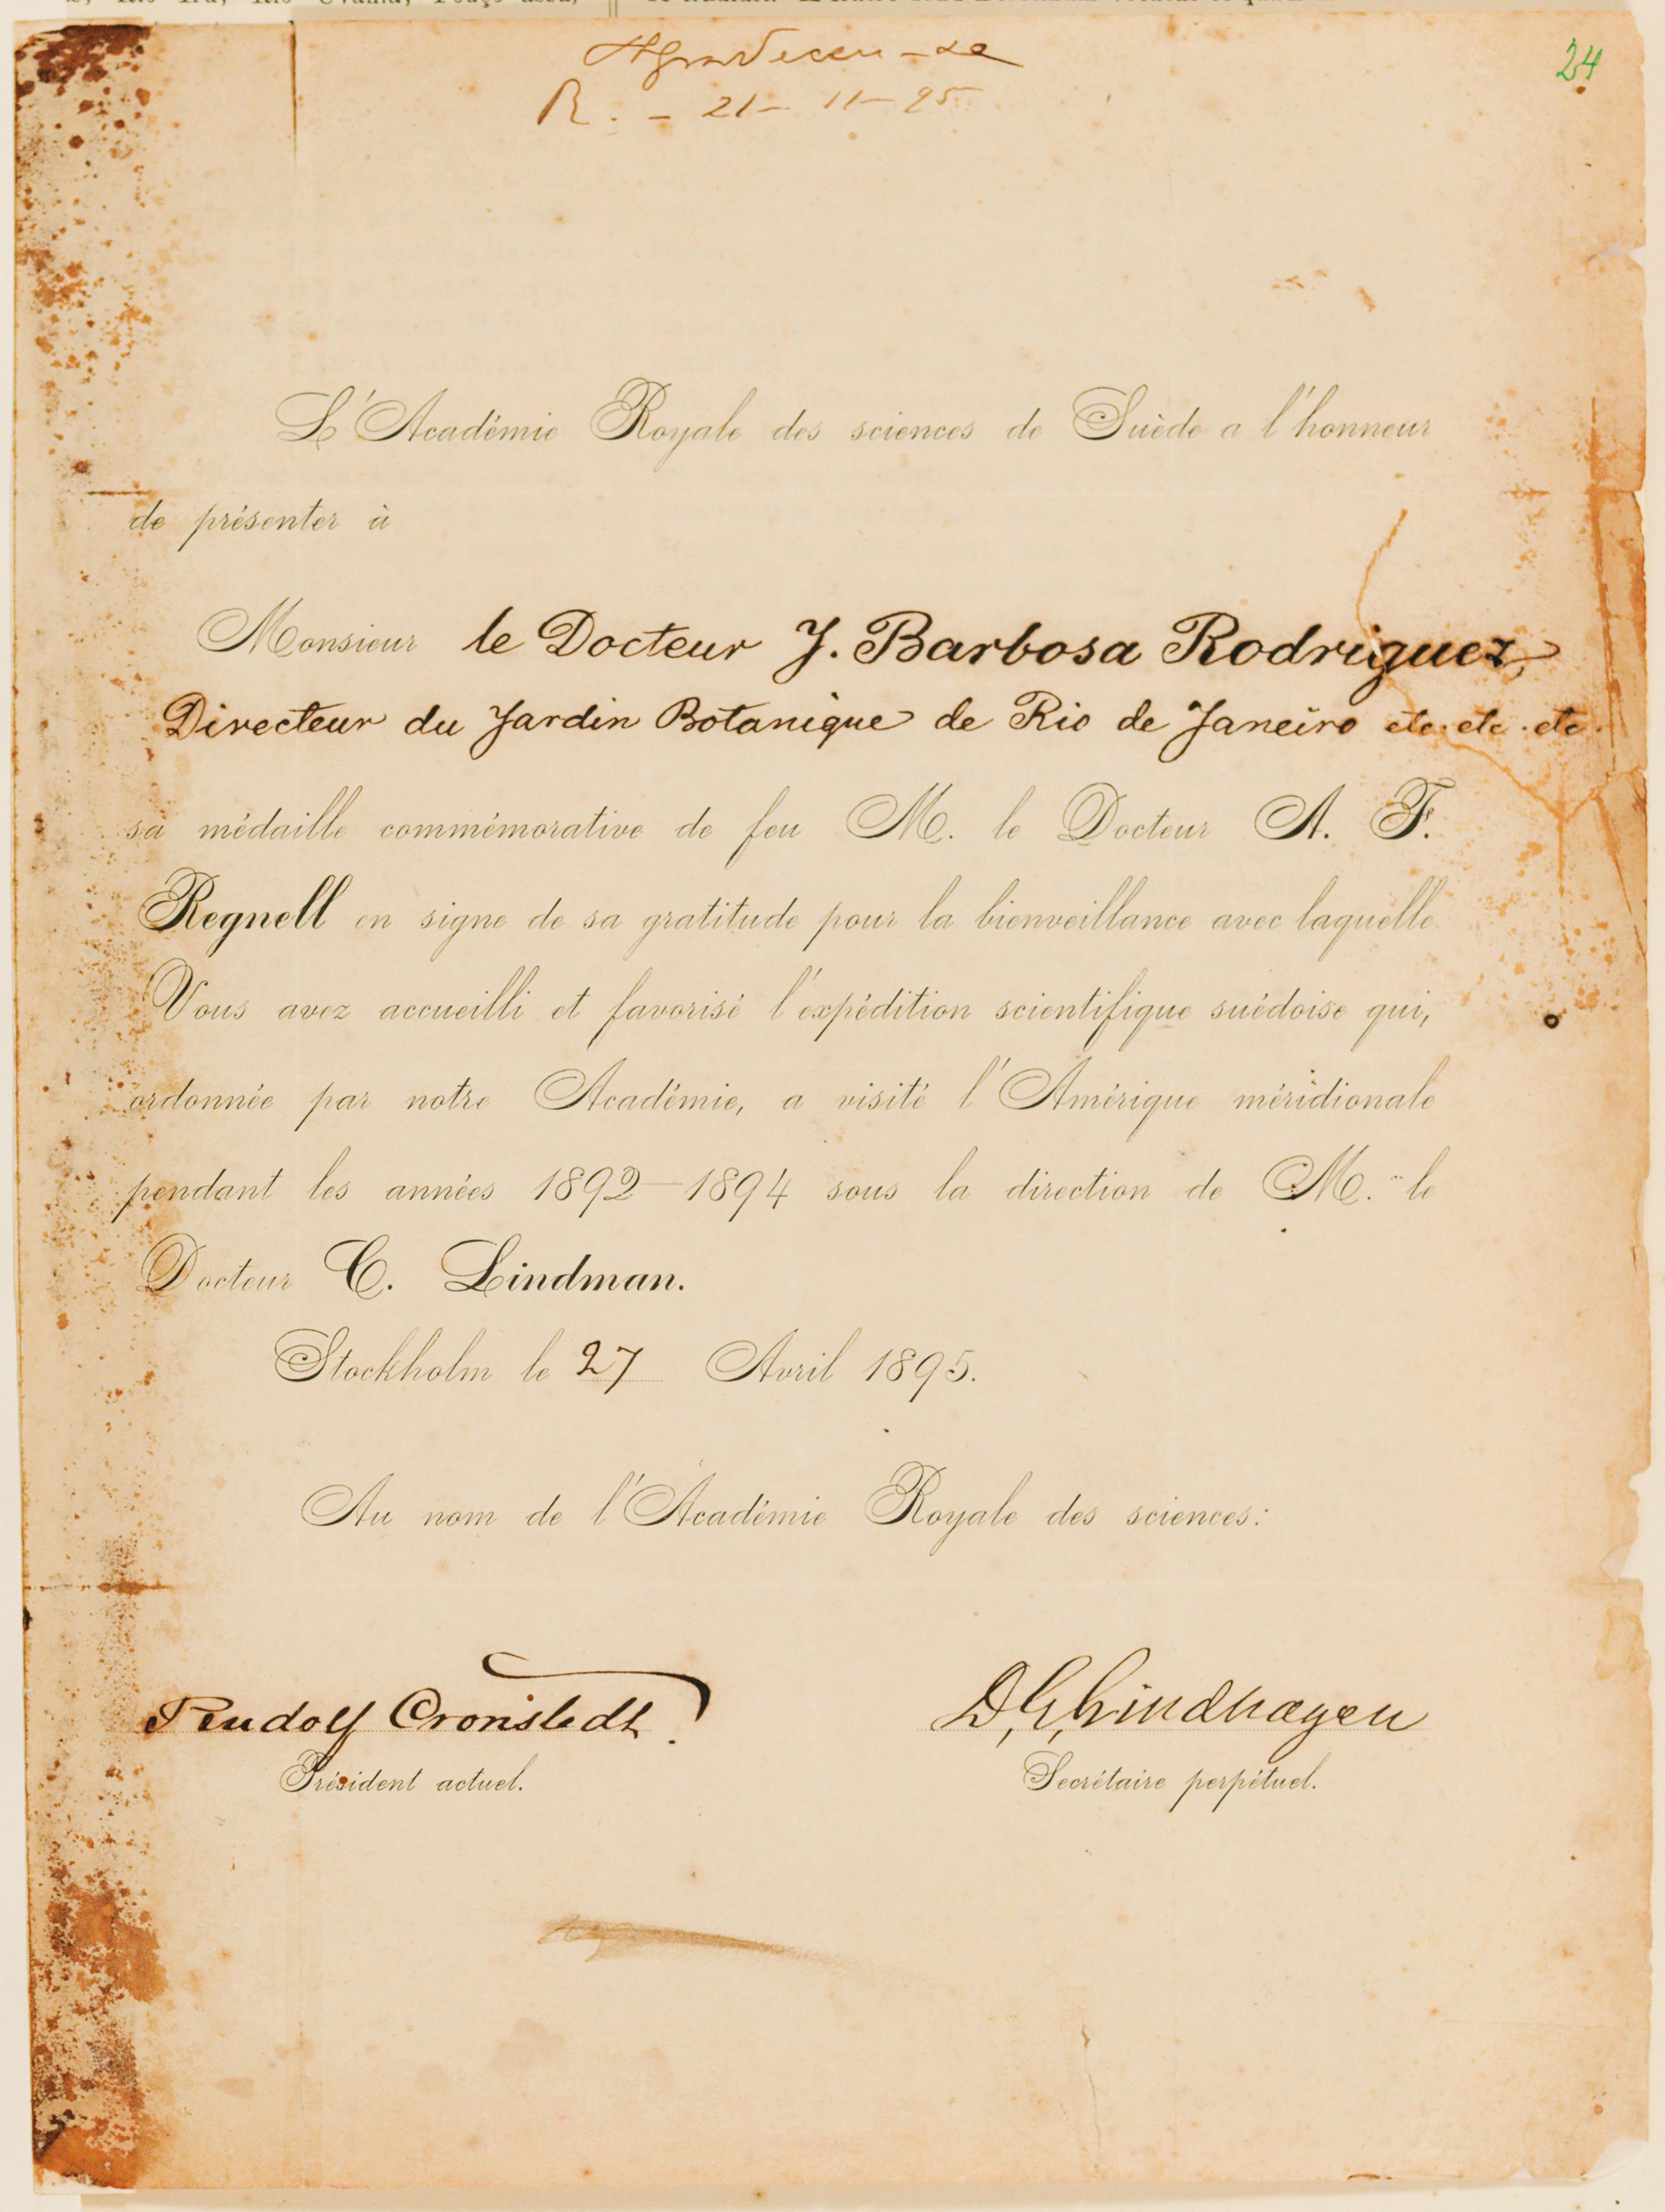 Agradeceu-se
R. - 21 - 11 - 95
24
L'Académie Royale des sciences de Suède a l'honneur
de présenter à
Monsieur le Docteur J. Barbosa Rodriguez,
Directeur du Jardin Botanique de Rio de Janeiro etc. etc. etc.
sa médaille commémorative de feu M. le Docteur A. F.
Regnell en signe de sa gratitude pour la bienveillance avec laquelle
Vous avez accueilli et favorisé l'expédition scientifique suédoise qui,
ordonnée par notre Académie, a visité l'Amérique méridionale
pendant les années 1892—1894 sous la direction de M. le
Docteur C. Lindman.
Stockholm le 27 Avril 1895.
Au nom de l'Académie Royale des sciences:
Rudolf Cronstedt.
Président actuel.
D. G. Lindhagen
Secrétaire perpétuel.